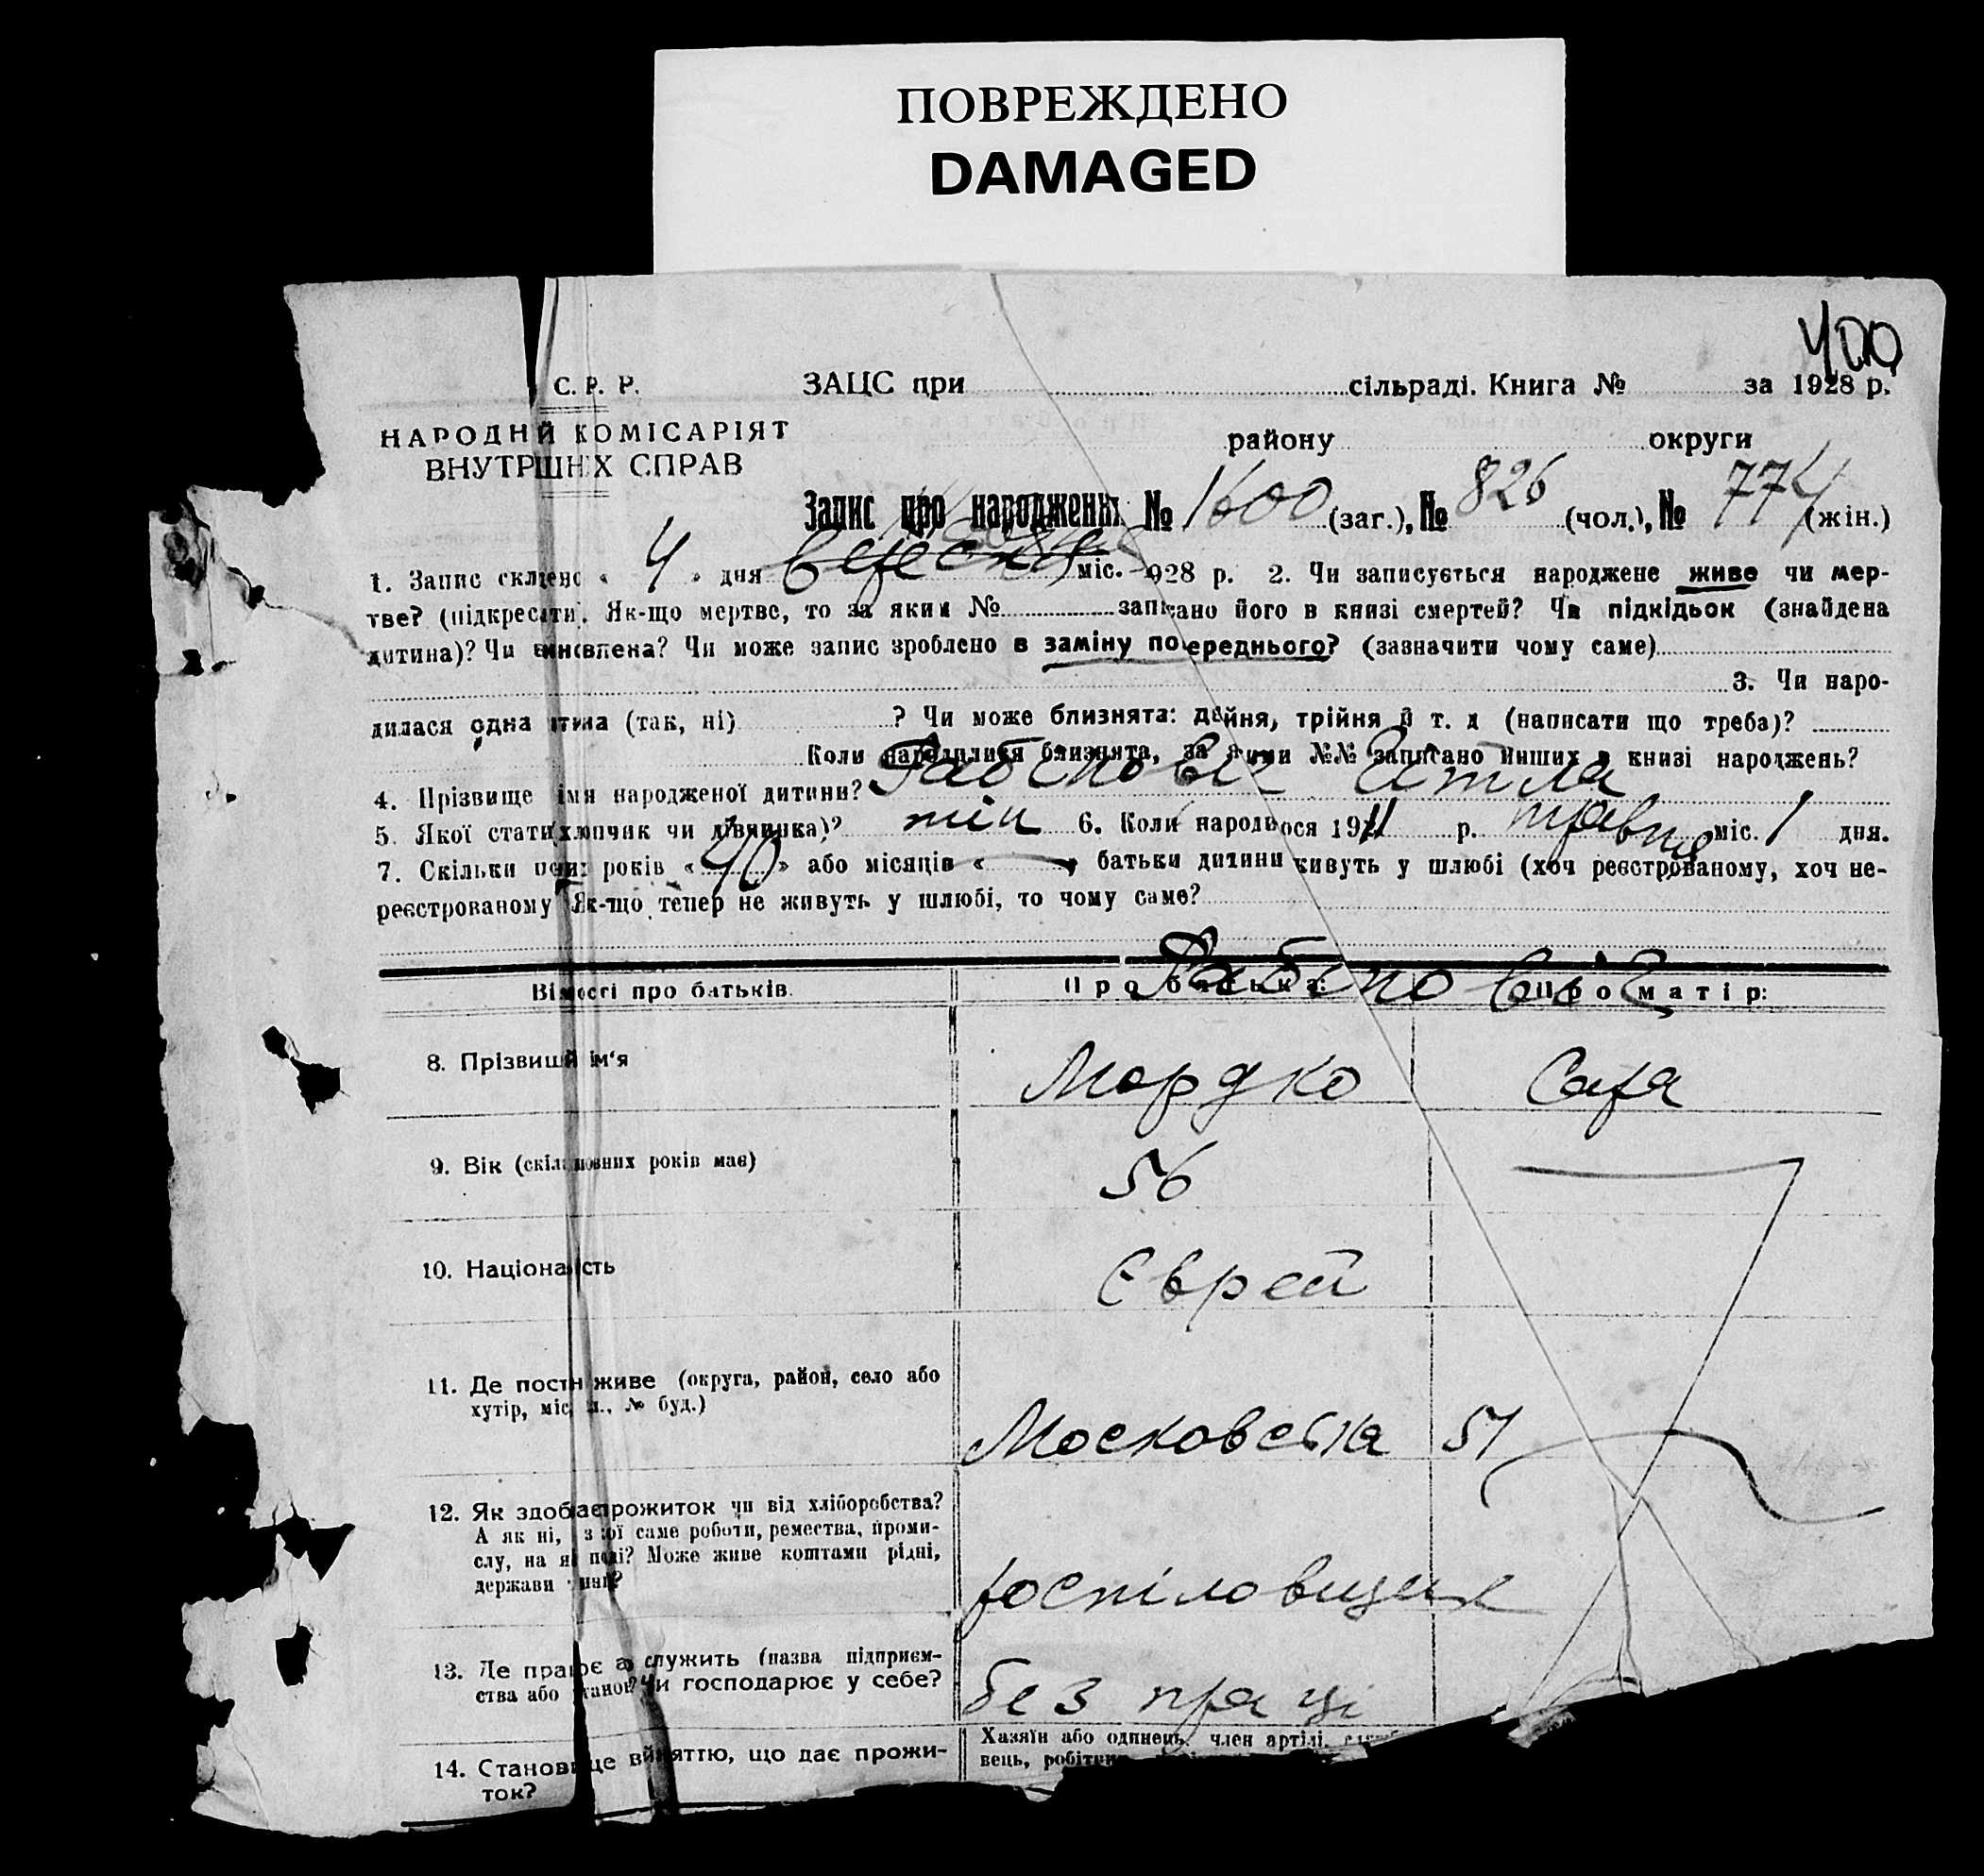 ПОВРЕЖДЕНО
DAMAGED
400
С. Р. Р.
ЗАЦС при сільраді. Книга № за 1928 р.
НАРОДНИЙ КОМІСАРІЯТ
ВНУТРІШНІХ СПРАВ
району округи
Запис про народжених № 1600 (заг.), № 826 (чол.), № 774 (жін.)
1. Запис складено « 4 » дня вересня міс. 1928 р. 2. Чи записується народжене живе чи мер-
тве? (підкреслити). Як-що мертве, то за яким № записано його в книзі смертей? Чи підкідьок (знайдена
дитина)? Чи Чи може запис зроблено в заміну попереднього? (зазначити чому саме)
3. Чи наро-
дилася одна дитина (так, ні) ? Чи може близнята: двійня, трійня й т. д (написати що треба)?
Коли народилися близнята, за якими №№ записано инших в книзі народжень?
4. Прізвище імя народженої дитини? Рабіновіч
5. Якої статі (хлопчик чи дівчинка)? 6. Коли народилося 1911 р. травня міс. 1 дня.
7. Скільки років « 40 » або місяців « — » батьки дитини живуть у шлюбі (хоч реєстрованому, хоч не-
реєстрованому Як-що тепер не живуть у шлюбі, то чому саме?
Рабіновіч
Відомості про батьків. Про батька: Про матір:
8. Прізвище ім'я Мордко Сара
9. Вік (скільки повних років має) 56
10. Національність Єврей
11. Де постійно живе (округа, район, село або
хутір, місто, №  буд.) Московська 51
12. Як здобуває прожиток чи від хліборобства?
А як ні, з якої саме роботи, ремества, проми-
слу, на якій посаді? Може живе коштами рідні,
держави
13. Де працює або служить (назва підприєм-
ства або установи? Чи господарює у себе? без праці
14. Становище в заняттю, що дає прожи-
ток?
Хазяїн або одинець, член артілі,
вець,